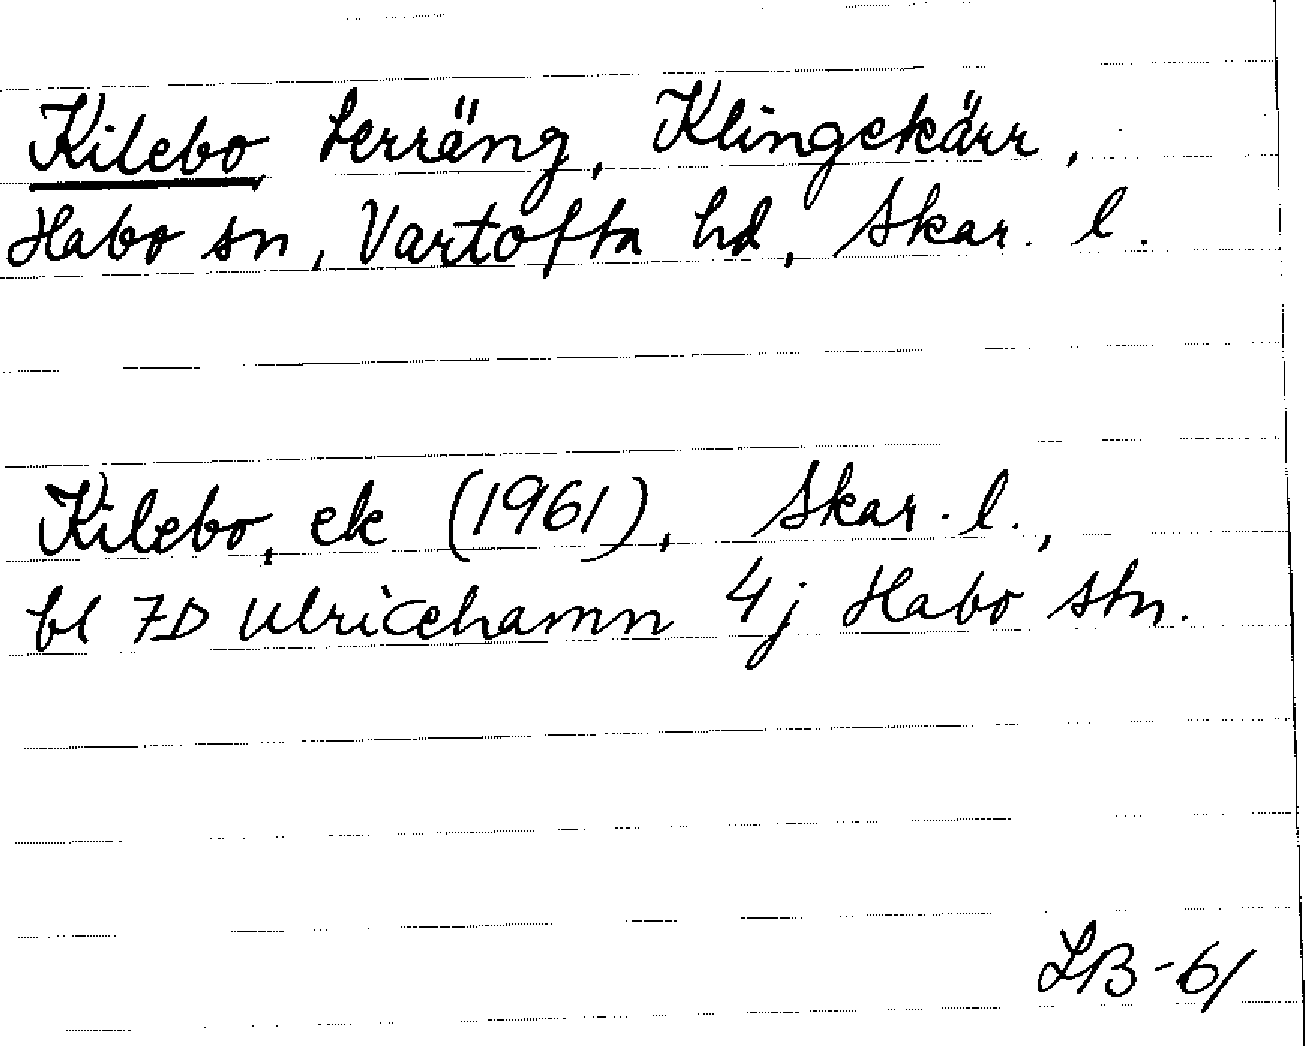 Kilebo Lerräng, Klingekärr,
Habo sn, Vartofta hd, Skar. l.
Kilebo, ek (1961), Skar. l.,
bl 7D Ulricehamn 4j Habo stn.
LB-61